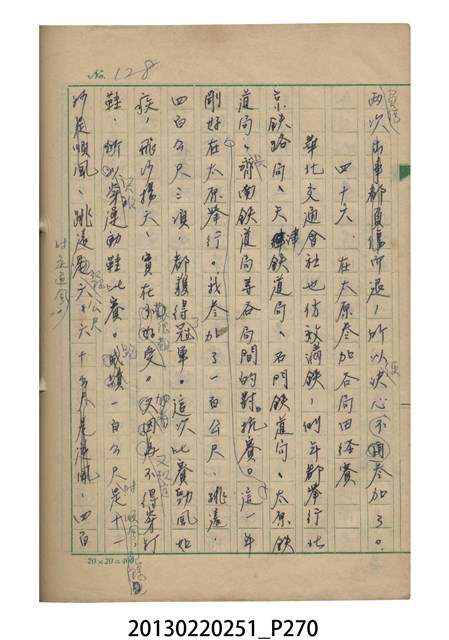 No. 128
兩次出事都負傷而退，所以決心不再參加了。
四十六、在太原參加各局田徑賽
華北交通會社也仿效滿鐵，例年都舉行北
京鐵路局、天津鐵道局、石門鐵道局、太原鐵
道局、濟南鐵道局等各局間的對抗賽。這一年
剛好在太原舉行。我參加了一百公尺、跳遠、
四百公尺三項，都獲得冠軍。這次比賽勁風如
疾，飛沙揚天，實在不好受。又因為不得穿釘
鞋，所以穿運動鞋比賽。成績一百公尺是十一
秒是順風，跳遠是六米六十公分是逆風，四百
20×20=400
20130220251_P270